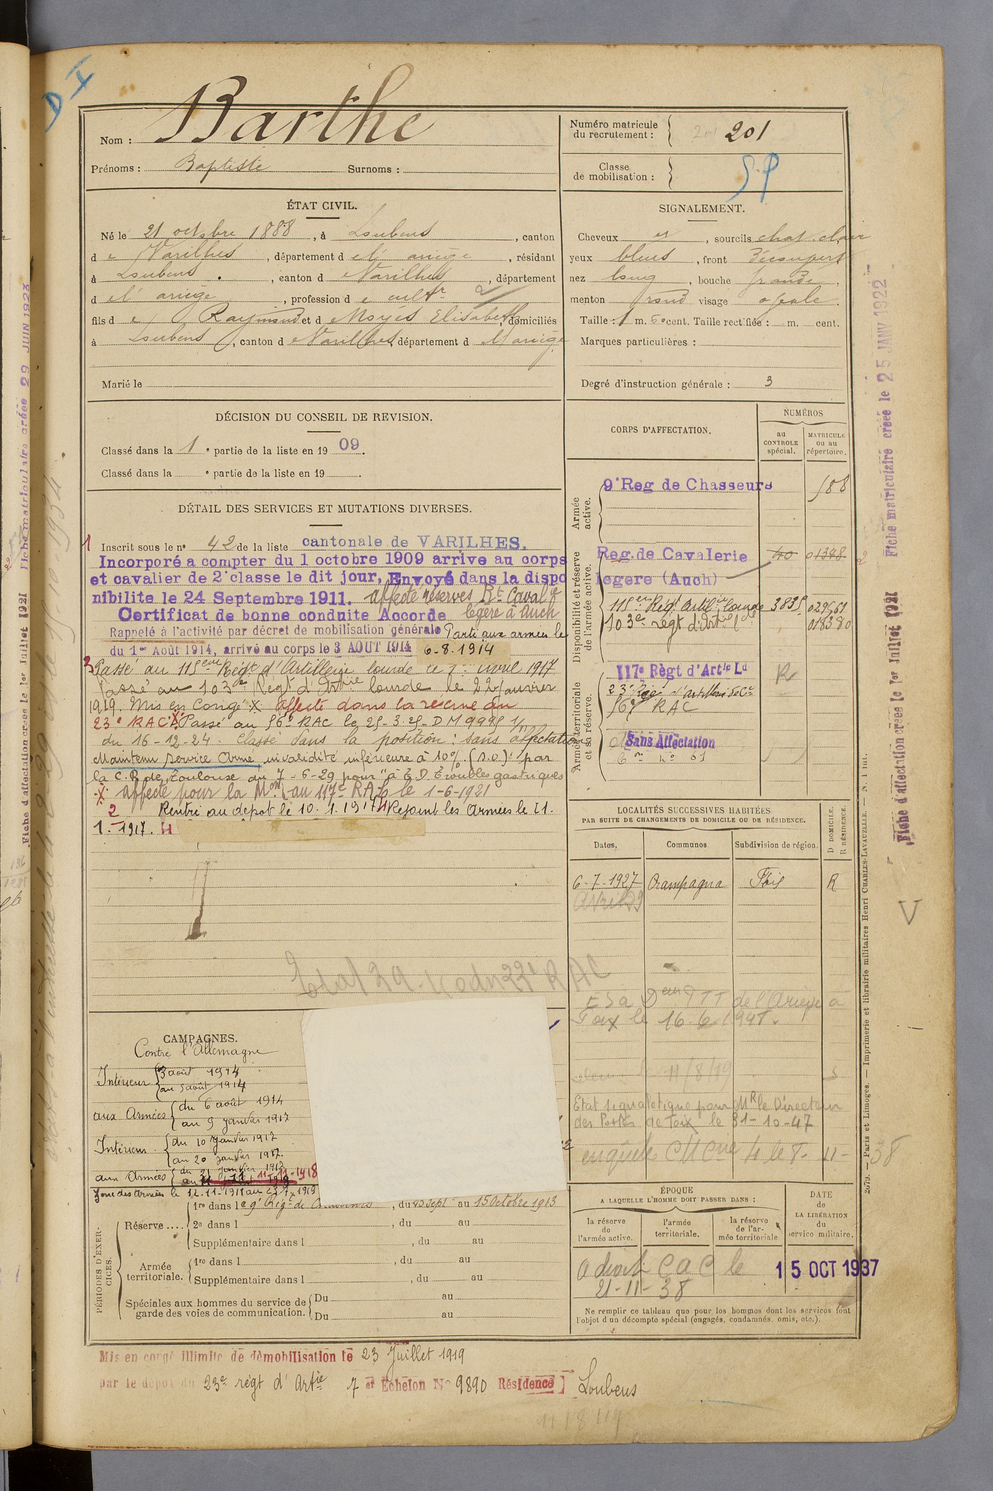 Nom : Barthe
Prénoms : Baptiste Surnoms :
Numéro matricule du recrutement : 201
Classe de mobilisation : S.P
ÉTAT CIVIL.
Né le 21 octobre 1888, à Loubens, canton
d e Varilhes, département d e l'ariège, résidant
à Loubens, canton d e Varilhes, département
d e l'ariège, profession d e cultr
fils d e Raymond et d e Noyès Elisabeth, domiciliés
à Loubens, canton d e Varilhes département d e l'ariège
Marié le
SIGNALEMENT.
Cheveux et, sourcils chat. clair
yeux bleus, front découvert
nez long, bouche grande,
menton rond visage ovale.
Taille : 1 m. cent. Taille rectifiée : m. cent.
Marques particulières :
Degré d'instruction générale : 3
DÉCISION DU CONSEIL DE REVISION.
Classé dans la 1e partie de la liste en 1909.
Classé dans la e partie de la liste en 19
DÉTAIL DES SERVICES ET MUTATIONS DIVERSES.
1 Inscrit sous le n° 42 de la liste cantonale de VARILHES.
Incorporé a compter du 1 octobre 1909 arrive au corps
et cavalier de 2e classe le dit jour. Envoyé dans la dispo
nibilite le 24 Septembre 1911. affecté réserves Rt Caval
Certificat de bonne conduite Accorde légère à Auch
Rappelé à l'activité par décret de mobilisation générale Parti aux armées le
du 1er Août 1914, arrivé au corps le 3 AOUT 1914 6-8.1914
3 Passé au 115eme Régt d'Artillerie lourde le 1er avril 1917
Passé au 103e Régt d'Artie lourde le 22 janvier
1919. Mis en Congé X affecté dans la réserve au
23e RAC X Passé au 56e RAC le 25-3-25- DM 9995 1/11
du 16-12-24. Classé dans la position : sans affectation
Maintenu Service Armé, invalidité inférieure à 10% (S.O.) par
la C.R. de Toulouse du 7-6-29 pour "à E.D. Troubles gastriques
X affecté pour la Mon au 117e RAL le 1-6-1921
2 Rentré au dépôt le 10.1.1917 Rejoint les Armées le 21.
1.1917.
CORPS D'AFFECTATION.
NUMÉROS
au CONTROLE spécial.
MATRICULE ou au répertoire.
Armée active.
9e Reg de Chasseurs 588
Disponibilité et réserve de l'armée active.
Reg. de Cavalerie 40 01348
légère (Auch)
115eme Régt Artie lourde 3035
103e régt d'Artie lde 018380
Armée territoriale et sa réserve.
117e Règt d'Artie Ld R
23e Régt d'artillerie de Cne
56e RAC
Sans Affectation
LOCALITÉS SUCCESSIVES HABITÉES
PAR SUITE DE CHANGEMENTS DE DOMICILE OU DE RÉSIDENCE.
Dates. Communes Subdivision de région. D DOMICILE. R RÉSIDENCE.
6-7-1927 Crampagna Foix R
ESà Deur PTT de l'Ariège à
Foix le 16.6.1941.
11/8/19
Etat signalétique pour Mr le Directeur
des Postes de Foix le 31-10-47
enquête CMCne 4 le 8-11-38
CAMPAGNES.
Contre l'Allemagne
Intérieur 3 août 1914
au 5 août 1914
aux Armées du 6 août 1914
au 9 janvier 1917
Intérieur du 10 janvier 1917
au 20 janvier 1917.
aux Armées du 21 janvier 1917
au 11-11-1918
Zone des Armées le 12-11-1918 au 1919
PÉRIODES D'EXERCICES.
Réserve .... 1re dans l e 9e Régt de Chasseurs, du 23 Sept au 15 Octobre 1913
2e dans l , du au
Supplémentaire dans l , du au
Armée territoriale. 1re dans l , du au
Supplémentaire dans l , du au
Spéciales aux hommes du service de garde des voies de communication. Du au
Du au
ÉPOQUE
A LAQUELLE L'HOMME DOIT PASSER DANS :
la réserve de l'armée active.
l'armée territoriale.
la réserve de l'armée territoriale
DATE DE LA LIBÉRATION du service militaire.
a droit CAC le
21-11-38
15 OCT 1937
Ne remplir ce tableau que pour les hommes dont les services font
l'objet d'un décompte spécial (engagés, condamnés, omis, etc.).
Mis en congé illimité de démobilisation le 23 Juillet 1919
par le dépôt du 23e régt d'Artie 7 et Echelon N° 9890 Résidence] Loubens
11 8 119
Fiche matriculaire créée le 25 JANV 1922
Fiche d'affectation créée le 1er Juillet 1921
Fiche matriculaire créée 29 JUIN 1923
Fiche d'affectation créée le 1er Juillet 1921
Paris et Limoges. — Imprimerie et librairie militaires Henri CHARLES-LAVAUZELLE.